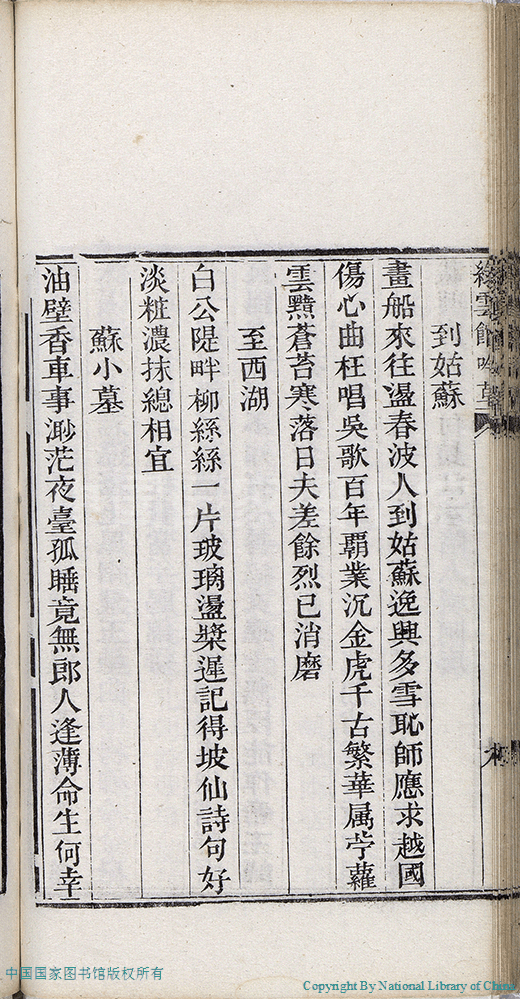 雲館吟草
到姑蘇
畫船來往盪春波人到姑蘇逸興多雪恥師應求越國
傷心曲枉唱吳歌百年霸業沉金虎千古繁華属苧蘿
雲黯蒼苔寒落日夫差餘烈已消磨
至西湖
白公隄畔柳絲絲一片玻璃盪槳遲記得坡仙詩句好
淡粧濃抹總相宜
蘇小墓
油壁香車事渺茫夜臺孤睡竟無郎人逢薄命生何幸
中国国家图书馆版权所有
Copyright By National Library of China